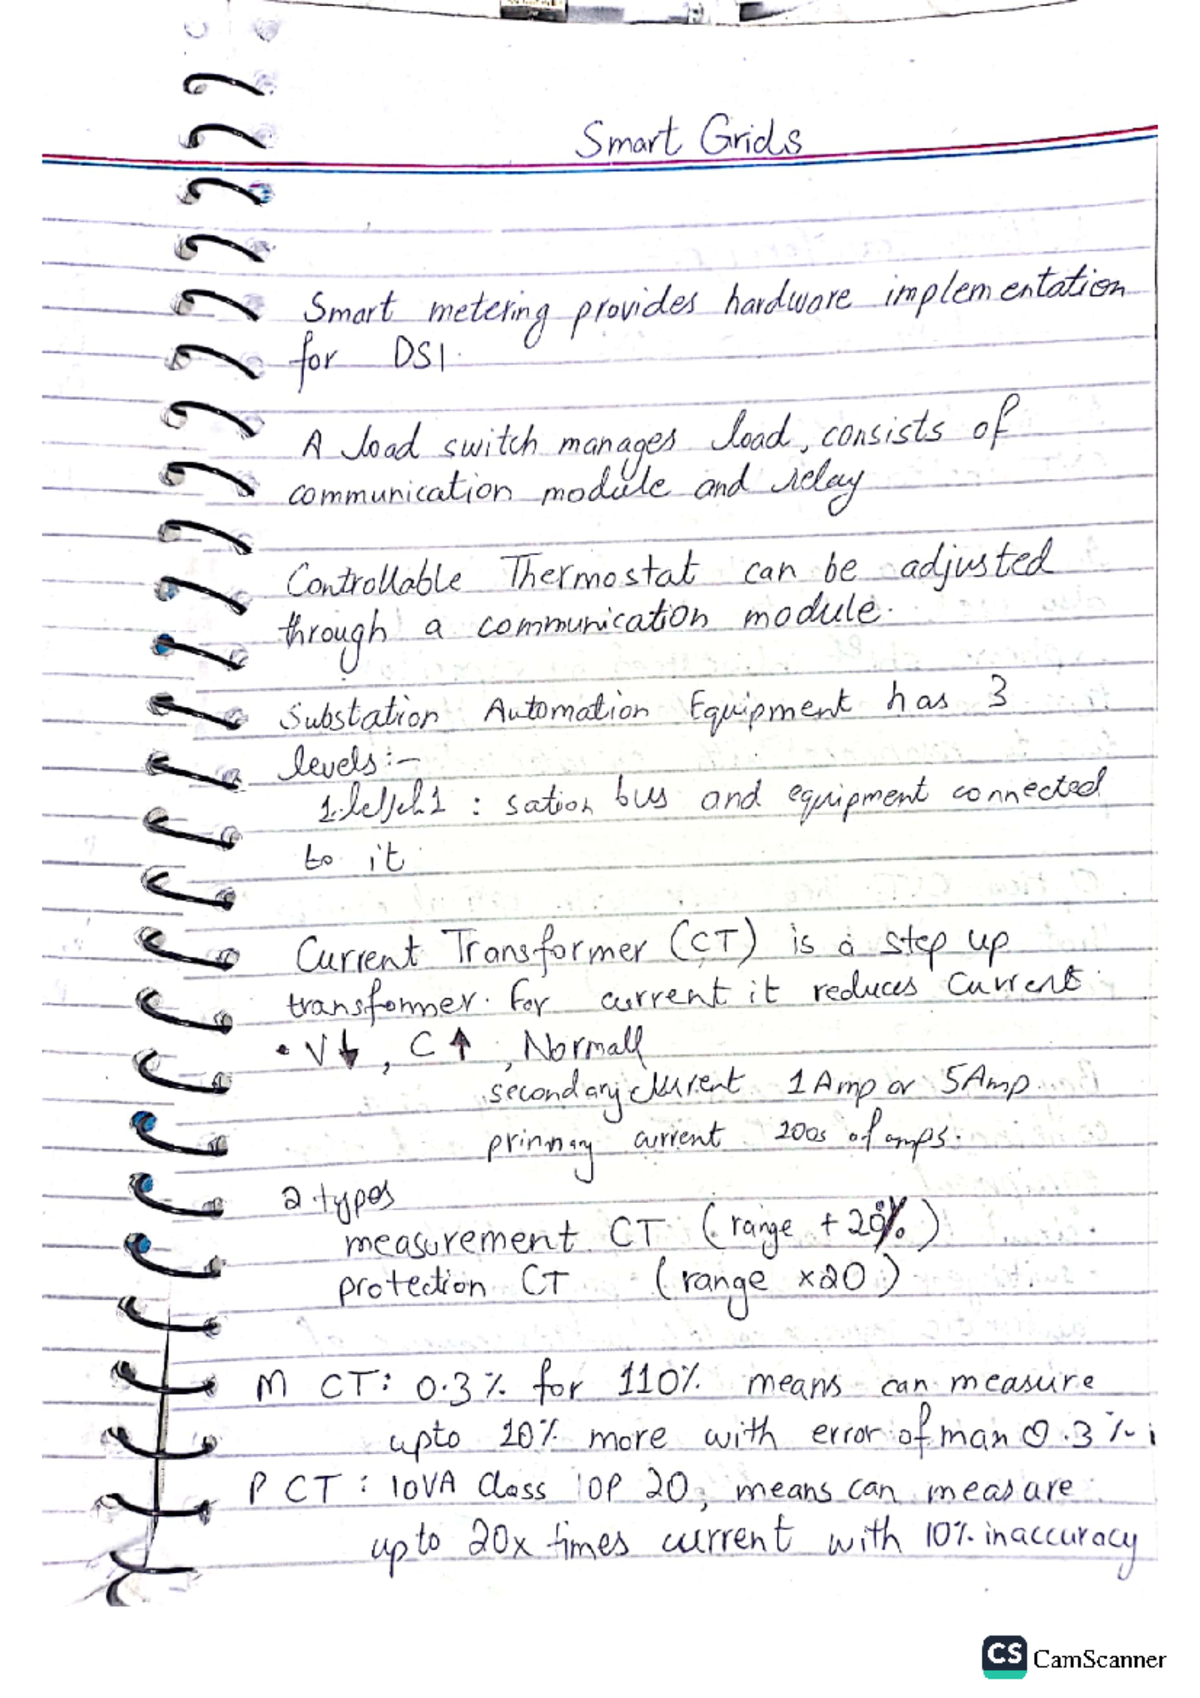 Smart Grids
Smart metering provides hardware implementation
for DSI.
A load switch manages load, consists of
communication module and relay
Controllable Thermostat can be adjusted
through a communication module.
Substation Automation Equipment has 3
levels:-
1. : sation bus and equipment connected
to it.
Current Transformer (CT) is a step up
transformer. For current it reduces current.
• V↓, C↑, Normall
secondary current 1Amp or 5Amp.
current 200s of amps.
2 types
measurement CT (range + 20%)
protection CT (range ×20)
M CT: 0.3% for 110% means can measure
upto 10% more with error of man 0.3%
P CT: 10VA Class 10P 20, means can measure
upto 20x times current with 10% inaccuracy
CS CamScanner